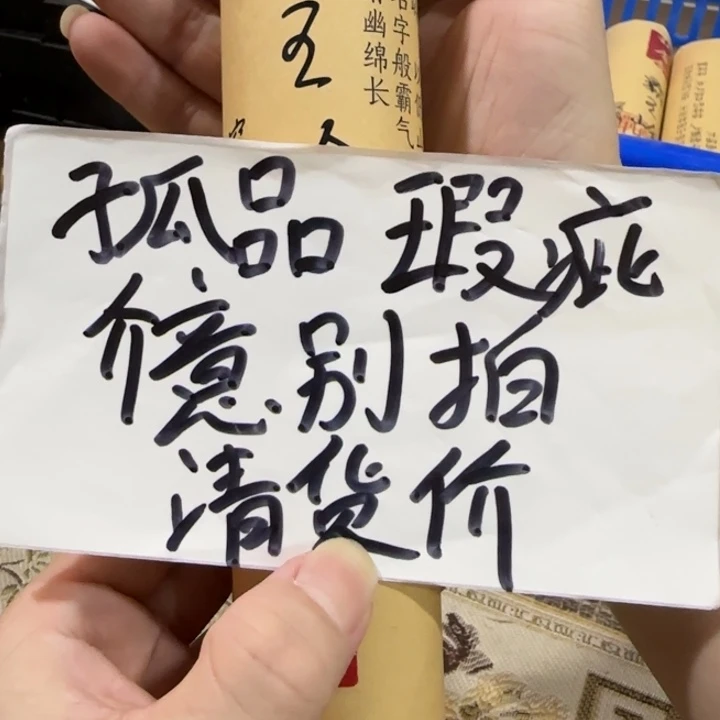 王
字般霸气
幽绵长
孤品 瑕疵
介意.别拍
清货价